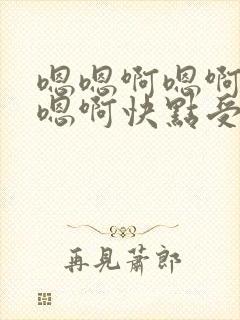 嗯嗯啊嗯啊
嗯啊快點受
再見蕭郎